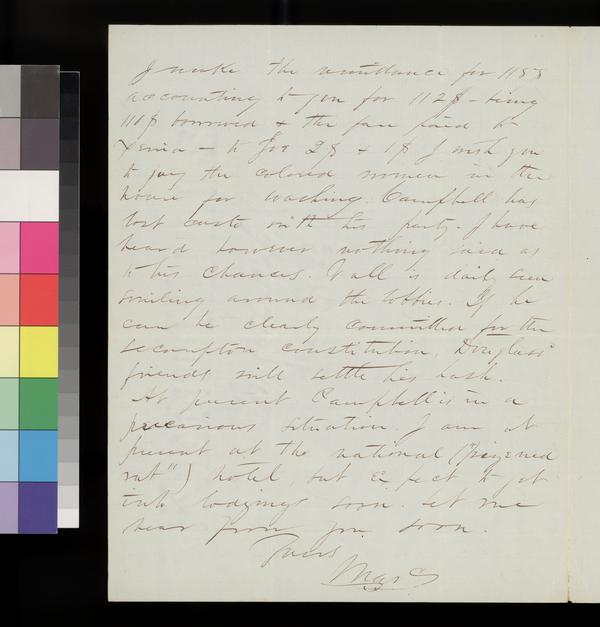 I make the remittance for 115$
accounting to you for 112$ - being
111$ borrowed & the fare paid to
Xenia - to Joo 2$ & 1$ I wish you
to pay the colored women in the
house for washing. Campbell has
lost caste with his party. I have
heard however nothing said as
to his chances. Vall is daily seen
smiling around the lobbies. If he
can be clearly committed for the
Lecompton constitution, Douglass'
friends will settle his hash.
At present Campbell is in a
precarious situation. I am at
present at the national ("
rat") hotel, but expect to get
into lodgings soon. Let me
hear from you soon.
Yours